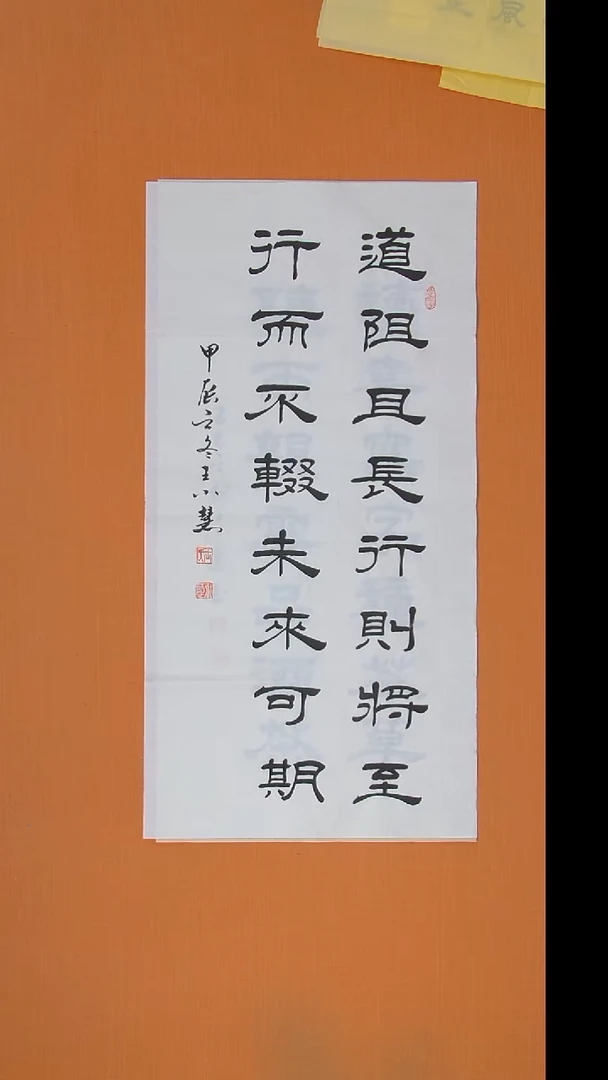 道阻且長行則將至
行而不輟未來可期
甲辰之冬王小慧